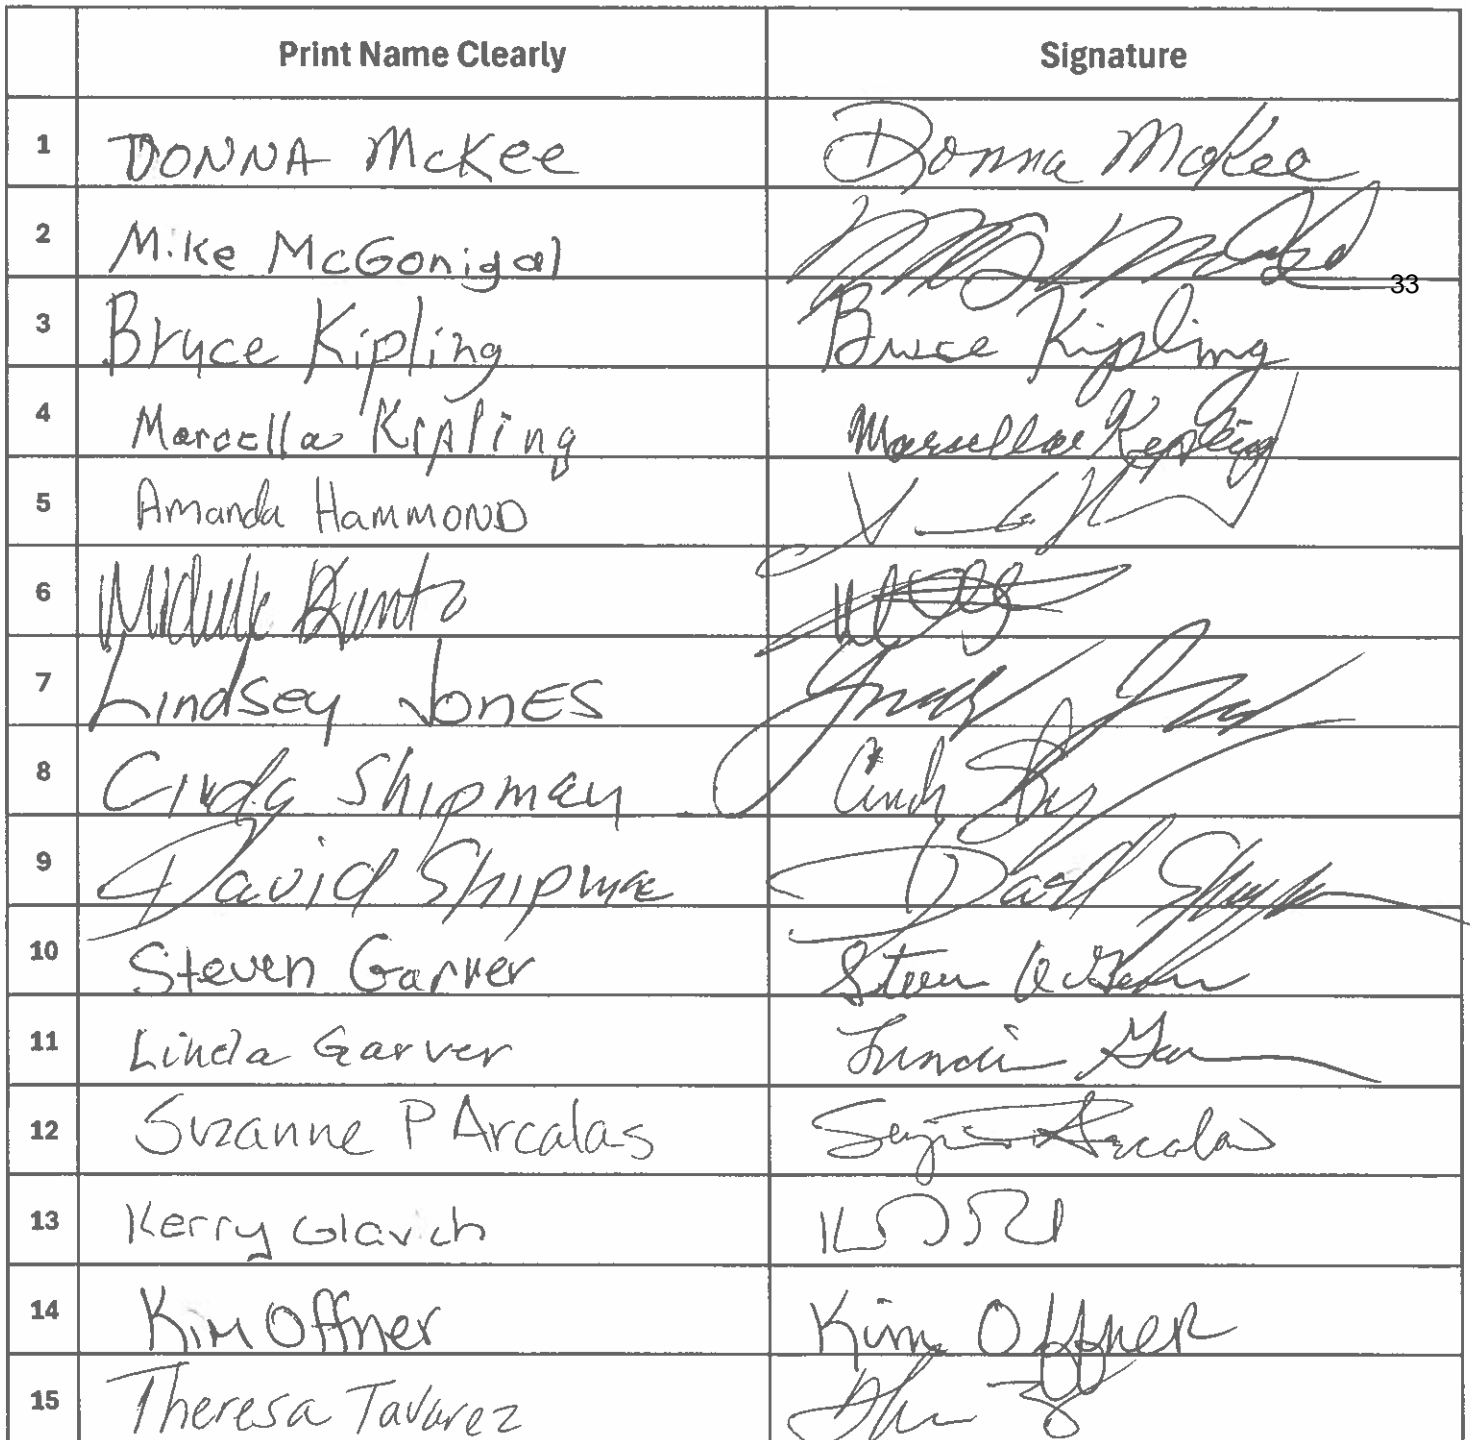 Print Name Clearly Signature
1 DONNA McKee Donna McKee
2 Mike McGonigal
33
3 Bryce Kipling Bryce Kipling
4 Marcella Kipling Marcella Kipling
5 Amanda HAMMOND
6 Michelle
7 Lindsey JonES
8 Cindy Shipman Cindy
9 David Shipman David
10 Steven Garver Steven Garver
11 Linda Garver Linda
12 Suzanne P Arcalas Arcalas
13 Kerry Glavich
14 Kim Offner Kim Offner
15 Theresa Tavarez